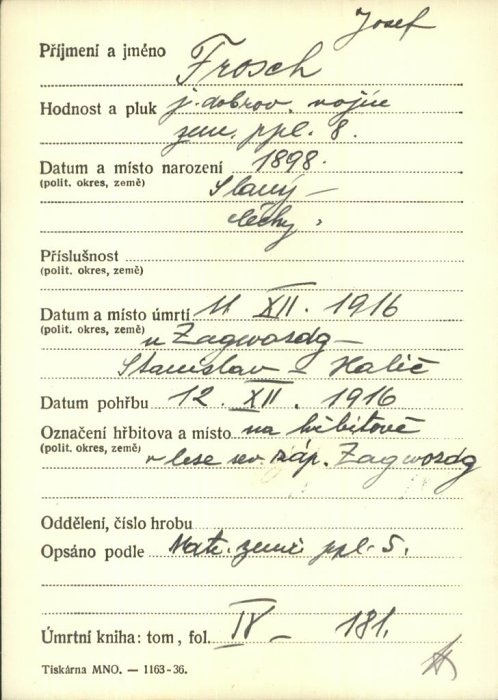 Josef
Příjmení a jméno Frosch
Hodnost a pluk j. dobrov. vojín
zem. ppl. 8.
Datum a místo narození 1898.
(polit. okres, země) Slaný –
Čechy,
Příslušnost
(polit. okres, země)
Datum a místo úmrtí 11 XII. 1916
(polit. okres, země) u Zagwosdg –
Stanislav – Halič
Datum pohřbu 12. XII. 1916
Označení hřbitova a místo na hřbitově
(polit. okres, země) v lese sev. záp. Zagwosdg
Oddělení, číslo hrobu
Opsáno podle Matr. zemř. ppl. 5.
Úmrtní kniha: tom, fol. IV – 181.
Tiskárna MNO. — 1163-36.